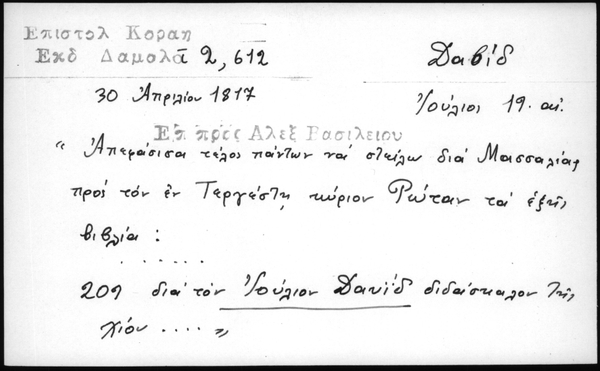 Επιστολ Κοραη
Εκδ Δαμολᾶ 2, 612
Δαβίδ
30 Ἀπριλίου 1817
Ἰούλιος 19. αἰ.
Επ πρὸς Αλεξ Βασιλειου
" Ἀπεφάσισα τέλος πάντων νά στείλω διά Μασσαλίας
πρός τόν ἐν Τεργέστῃ κύριον Ρώταν τά ἑξῆς
βιβλία :
. . . . . .
209 διά τόν Ἰούλιον Δαυίδ διδάσκαλον τῆς
Χίου .... "